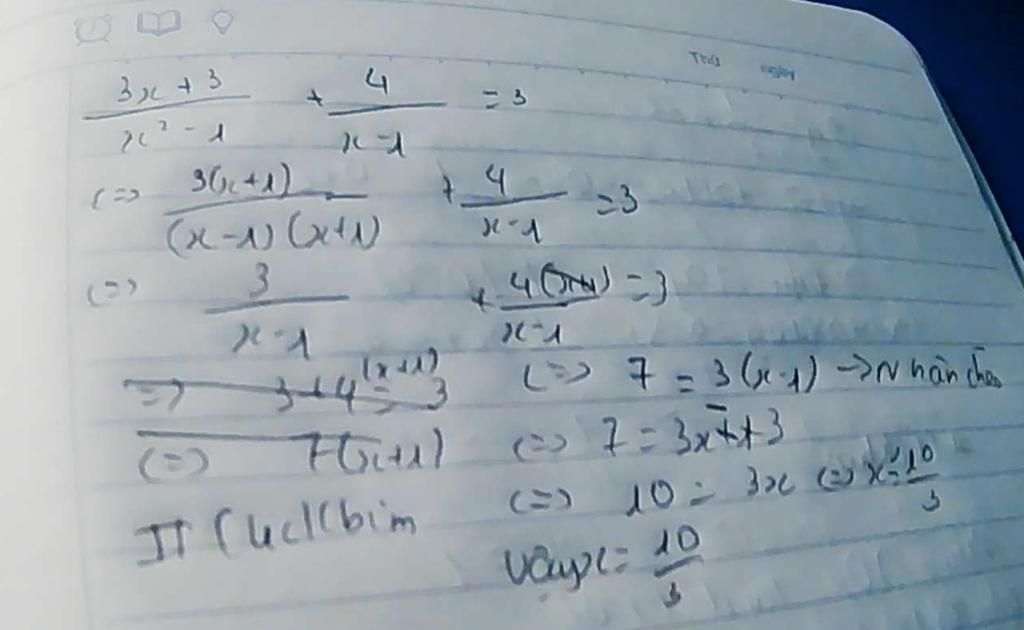 Thứ ngày
3x + 3 / x² - 1 + 4 / x - 1 = 3
<=> 3(x+1) / (x-1)(x+1) + 4 / x-1 = 3
<=> 3 / x-1 + 4(x+1) / x-1 = 3
=> 3+4(x+1) = 3
<=> 7(x+1)
<=> 7 = 3(x-1) -> Nhân chéo
<=> 7 = 3x - 3
<=> 10 = 3x <=> x = 10/3
Vậy x = 10/3